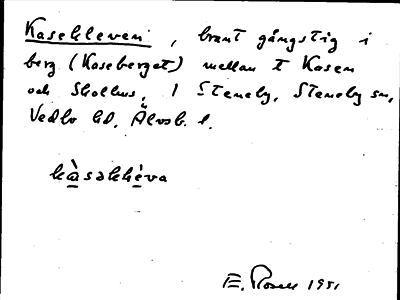 Kasekleven, brant gångstig i
berg (Kaseberget) mellan t Kasen
och Skolhus, 1 Steneby, Steneby sn,
Vedbo hd, Älvsb. l.
kàsəkhéva
E. 1951